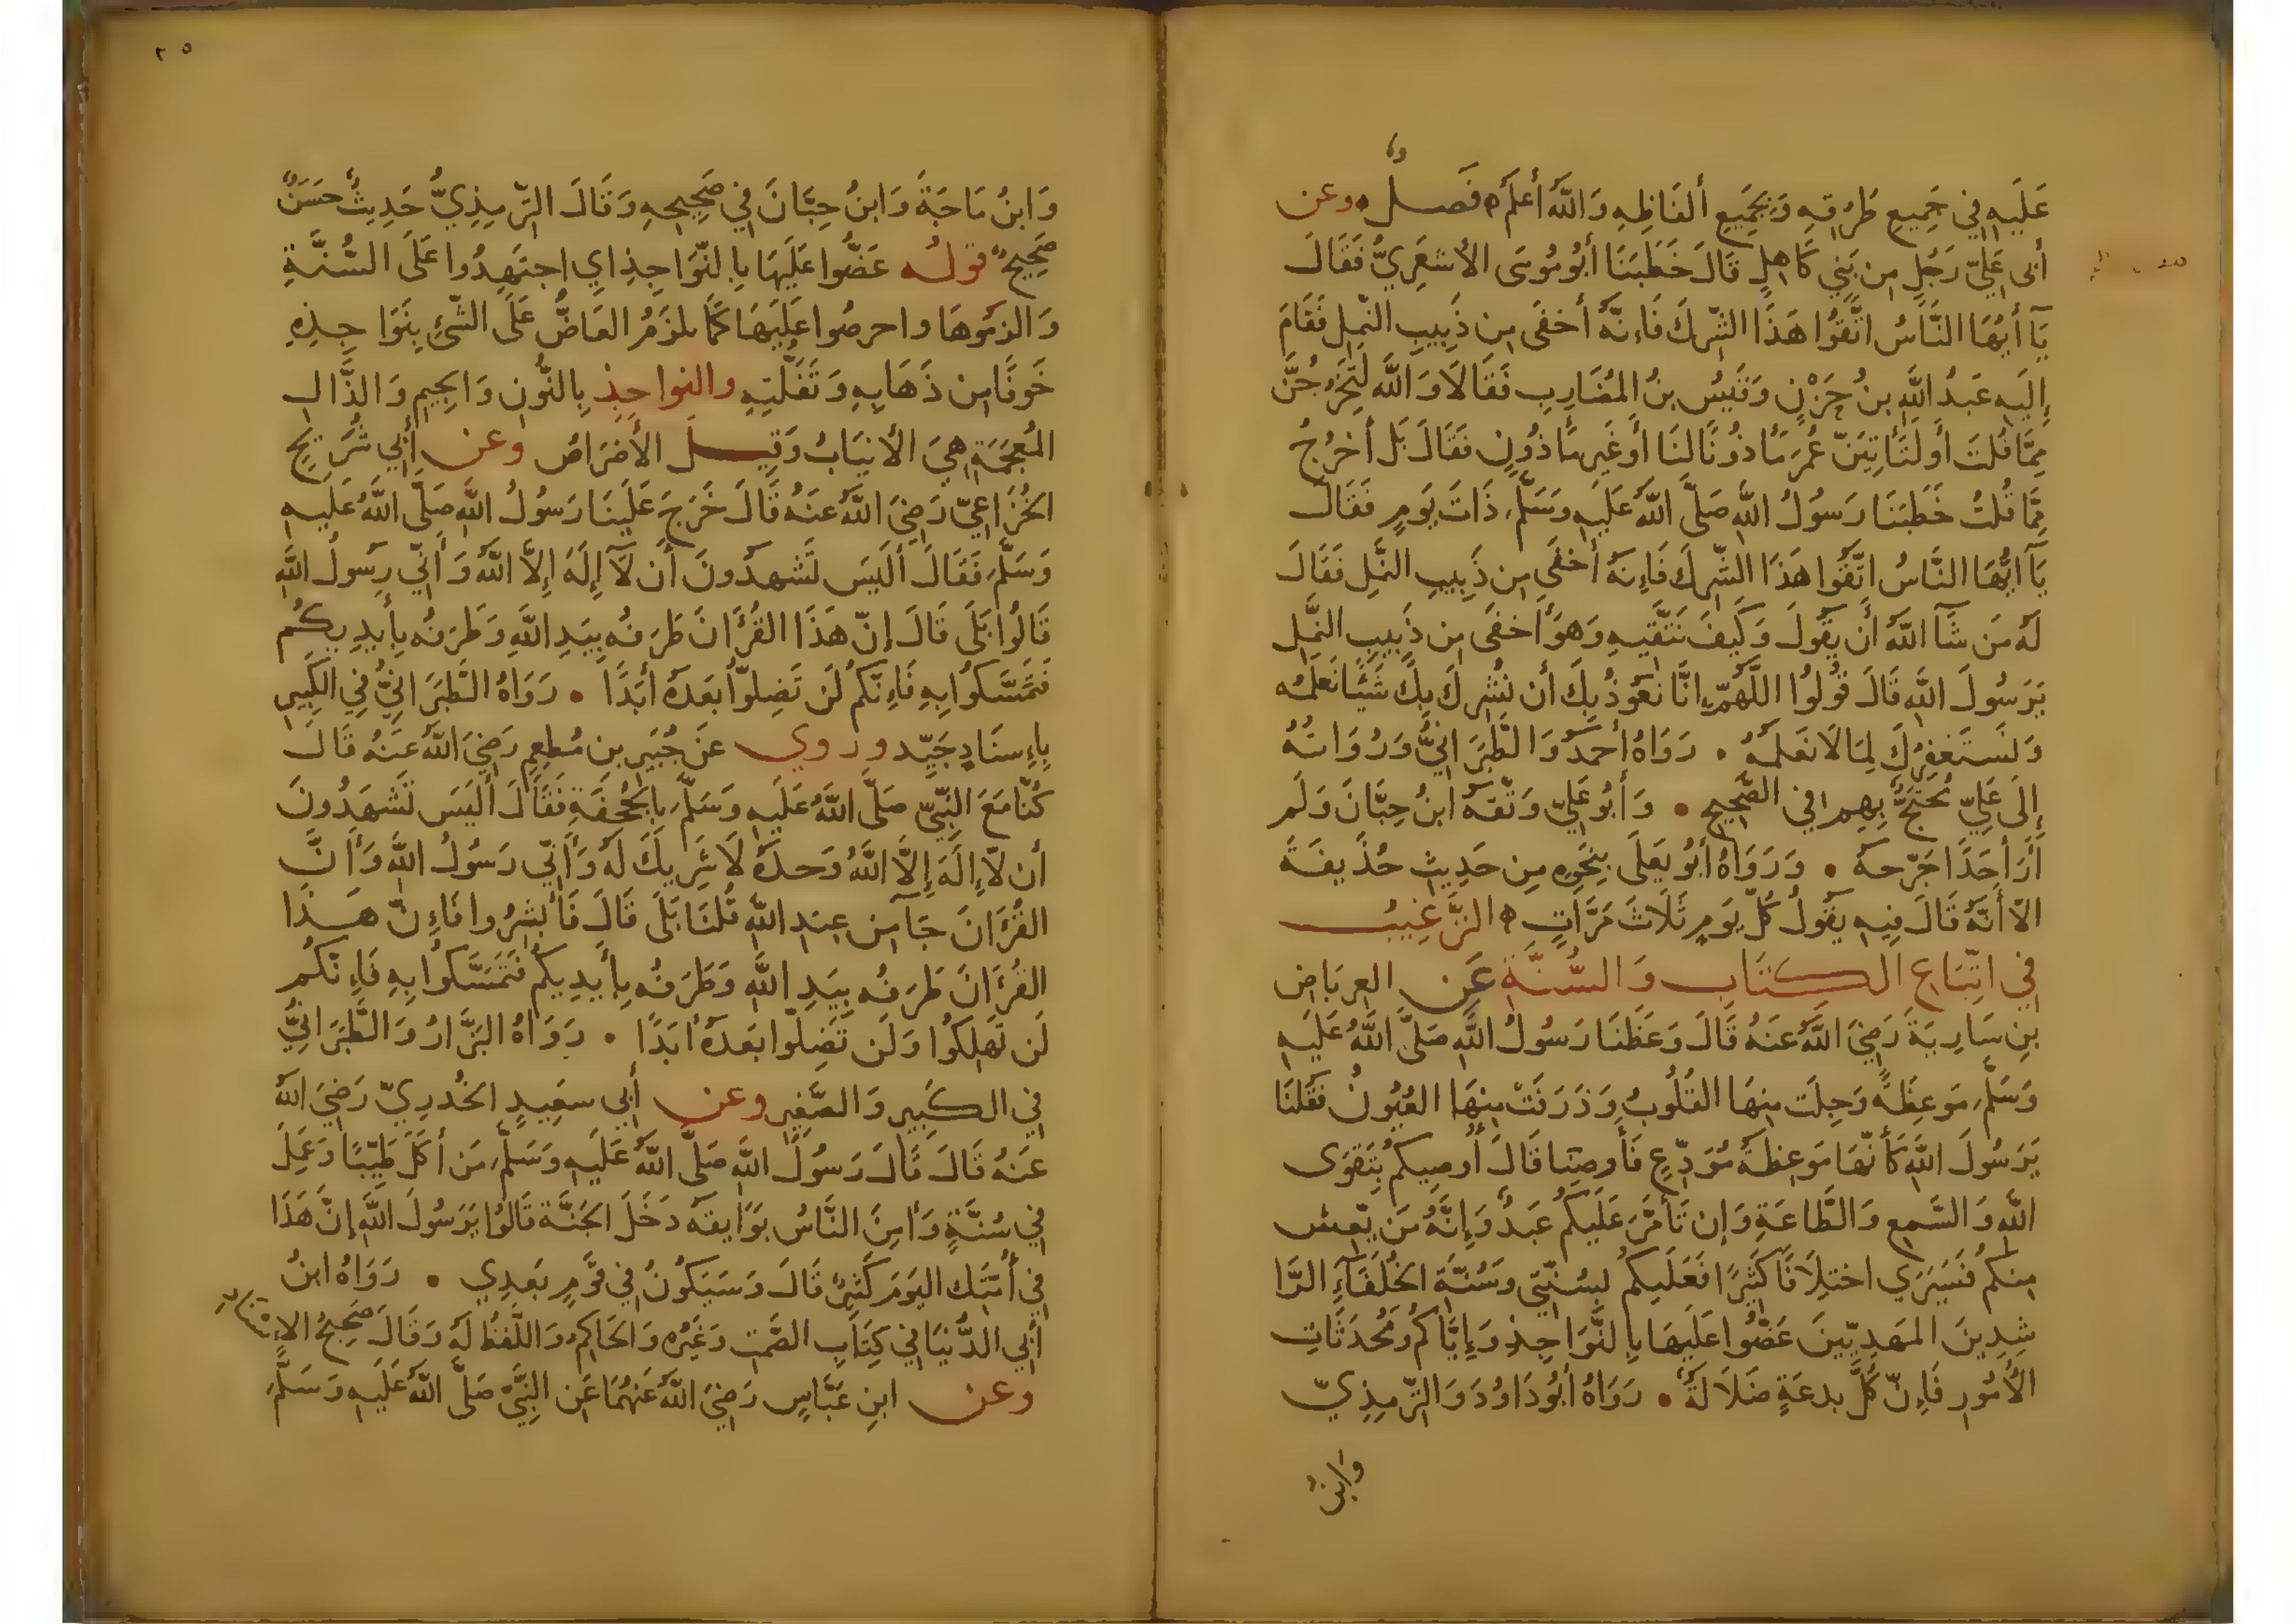 عَلَيهِ فِي جَمِيعِ طُرُقِهِ وَبِجَمِيعِ أَلفَاظِهِ وَاللَّهُ أَعلَمُ ه فَصل ه وعن
أَبِى عَلِيٍّ رَجُلٍ مِن بَنِي كَاهِلٍ قَالَ خَطَبَنَا أَبُو مُوسَى الأَشعَرِيُّ فَقَالَ
يَآ أَيُّهَا النَّاسُ اتَّقُوا هَذَا الشِّركَ فَإِنَّهُ أَخفَى مِن دَبِيبِ النَّملِ فَقَامَ
إِلَيهِ عَبدُ اللَّهِ بنُ حَزْنٍ وَقَيسُ بنُ المُضَارِبِ فَقَالَا وَاللَّهِ لَتَخرُجَنَّ
مِمَّا قُلتَ أَو لَنَأتِيَنَّ عُمَرَ مَأذُونًا لَنَا أَو غَيرَ مَأذُونٍ فَقَالَ بَل أَخرُجُ
مِمَّا قُلتُ خَطَبَنَا رَسُولُ اللَّهِ صَلَّى اللَّهُ عَلَيهِ وَسَلَّمَ ذَاتَ يَومٍ فَقَالَ
يَآ أَيُّهَا النَّاسُ اتَّقُوا هَذَا الشِّركَ فَإِنَّهُ أَخفَى مِن دَبِيبِ النَّملِ فَقَالَ
لَهُ مَن شَآ اللَّهُ أَن يَقُولَ وَكَيفَ نَتَّقِيهِ وَهُوَ أَخفَى مِن دَبِيبِ النَّملِ
يَرَسُولَ اللَّهِ قَالَ قُولُوا اللَّهُمَّ إِنَّا نَعُوذُ بِكَ أَن نُشرِكَ بِكَ شَيئًا نَعلَمُه
وَنَستَغفِرُكَ لِمَا لَا نَعلَمُهُ • رَوَاهُ أَحمَدُ وَالطَّبَرَانِيُّ وَرُوَاتُهُ
إِلَى عَلِيٍّ مُحتَجٌّ بِهِم فِي الصَّحِيحِ • وَأَبُو عَلِيٍّ وَثَّقَهُ ابنُ حِبَّانَ وَلَم
أَرَ أَحَدًا جَرَّحهُ • وَرَوَاهُ أَبُو يَعلَى بِنَحوِهِ مِن حَدِيثِ حُذَيفَةَ
الّا أَنَّهُ قَالَ فِيهِ يَقُولُ كُلَّ يَومٍ ثَلَاثَ مَرَّاتٍ ه التَّرغِيبُ
فِي اتِّبَاعِ الكتَابِ وَالسُّنَّةِ عَنِ العِربَاضِ
بنِ سَارِيَةَ رَضِيَ اللَّهُ عَنهُ قَالَ وَعَظَنَا رَسُولُ اللَّهِ صَلَّى اللَّهُ عَلَيهِ
وَسَلَّمَ مَوعِظَةً وَجِلَت مِنهَا القُلُوبُ وَذَرَفَتْ مِنهَا العُيُونُ فَقُلنَا
يَرَسُولَ اللَّهِ كَأَنَّهَا مَوعِظَةُ مُوَدِّعٍ فَأَوصِنَا قَالَ أُوصِيكُم بِتَقوَى
اللَّهِ وَالسَّمعِ وَالطَّاعَةِ وَإِن تَأَمَّرَ عَلَيكُم عَبدٌ وَإِنَّهُ مَن يَعِش
مِنكُم فَسَيَرَي اختِلَافًا كَثِيرًا فَعَلَيكُم بِسُنَّتِي وَسُنَّةِ الخُلَفَآءِ الرَّا
شِدِينَ المَهدِيِّينَ عَضُّوا عَلَيهَا بِالنَّوَاجِذِ وَإِيَّاكُم وَمُحدَثَاتِ
الأُمُورِ فَإِنَّ كُلَّ بِدعَةٍ ضَلَالَةٌ • رَوَاهُ أَبُو دَاوُدَ وَالتِّرمِذِيّ
وَابنُ
٢٥
وَابنُ مَاجَةَ وَابنُ حِبَّانَ فِي صَحِيحِهِ وَقَالَ التِّرمِذِيُّ حَدِيثٌ حَسَنٌ
صَحِيحٌ قولُه عَضُّوا عَلَيهَا بِالنَّوَاجِذِ اي اجتَهِدُوا عَلَى السُّنَّةِ
وَالزَمُوهَا واحرصُوا عَلَيهَا كَمَا يلزَمُ العَاضُّ عَلَى الشَّئِ بِنَوَاجِذِهِ
خَوفًا مِن ذَهَابِهِ وَتَفَلُّتِهِ والنواجِذ بِالنُّونِ وَالجِيمِ وَالذَّالِ
المُعجَمَةِ هِيَ الأَنيَابُ وَقِيلَ الأَضرَاسُ وعن أَبِي شُرَيحٍ
الخُزَاعِيِّ رَضِيَ اللَّهُ عَنهُ قَالَ خَرَجَ عَلَينَا رَسُولُ اللَّهِ صَلَّى اللَّهُ عَلَيهِ
وَسَلَّمَ فَقَالَ أَلَيسَ تَشهدُونَ أَن لَآ إِلَهَ إِلَّا اللَّهُ وَأَنِّي رَسُولُ اللَّهِ
قَالُوا بَلَى قَالَ إِنَّ هَذَا القُرءَانَ طَرَفُه بِيَدِ اللَّهِ وَطَرَفُه بِأَيدِيكُم
فَتَمَسَّكُوا بِهِ فَإِنَّكُم لَن تَضِلُّوا بَعدَهُ أَبَدًا • رَوَاهُ الطَّبَرَانِيُّ فِي الكَبِيرِ
بِإِسنَادٍ جَيِّد وروي عَن جُبَيرِ بنِ مُطعِمٍ رَضِيَ اللَّهُ عَنهُ قَالَ
كُنَّا مَعَ النَّبِيِّ صَلَّى اللَّهُ عَلَيهِ وَسَلَّمَ بِالجُحفَةِ فَقَالَ أَلَيسَ تَشهَدُونَ
أَن لَّآ إِلَهَ إِلَّا اللَّهُ وَحدَهُ لَا شَرِيكَ لَهُ وَأَنِّي رَسُولُ اللَّهِ وَأَنَّ
القُرءَانَ جَآ مِن عِندِ اللَّهِ قُلنَا بَلَى قَالَ فَأَبشِرُوا فَإِنَّ هَذَا
القُرءَانَ طَرَفُه بِيَدِ اللَّهِ وَطَرَفُه بِأَيدِيكُم فَتَمَسَّكُوا بِهِ فَإِنَّكُم
لَن تَهلِكُوا وَلَن تَضِلُّوا بَعدَهُ أَبَدًا • رَوَاهُ البَزَّارُ وَالطَّبَرَانِيُّ
فِي الكَبِيرِ وَالصَّغِيرِ وعن أَبِي سَعِيدٍ الخُدرِيِّ رَضِيَ اللَّهُ
عَنهُ قَالَ قَالَ رَسُولُ اللَّهِ صَلَّى اللَّهُ عَلَيهِ وَسَلَّمَ مَن أَكَلَ طَيِّبًا وَعَمِلَ
فِي سُنَّةٍ وَأَمِنَ النَّاسُ بَوَايِقَهُ دَخَلَ الجَنَّة قَالُوا يَرَسُولَ اللَّهِ إِنَّ هَذَا
فِي أُمَّتِكَ اليَومَ كَثِيرٌ قَالَ وَسَيَكُونُ فِي قَومٍ بَعدِي • رَوَاهُ ابنُ
أَبِي الدُّنيَا فِي كِتَابِ الصَّمتِ وَغَيرُه وَالحَاكِمُ وَاللَّفظُ لَهُ وَقَالَ صَحِيحُ الإِسنَادِ
وعن ابنِ عَبَّاسٍ رَضِيَ اللَّهُ عَنهُمَا عَنِ النَّبِيِّ صَلَّى اللَّهُ عَلَيهِ وَسَلَّمَ